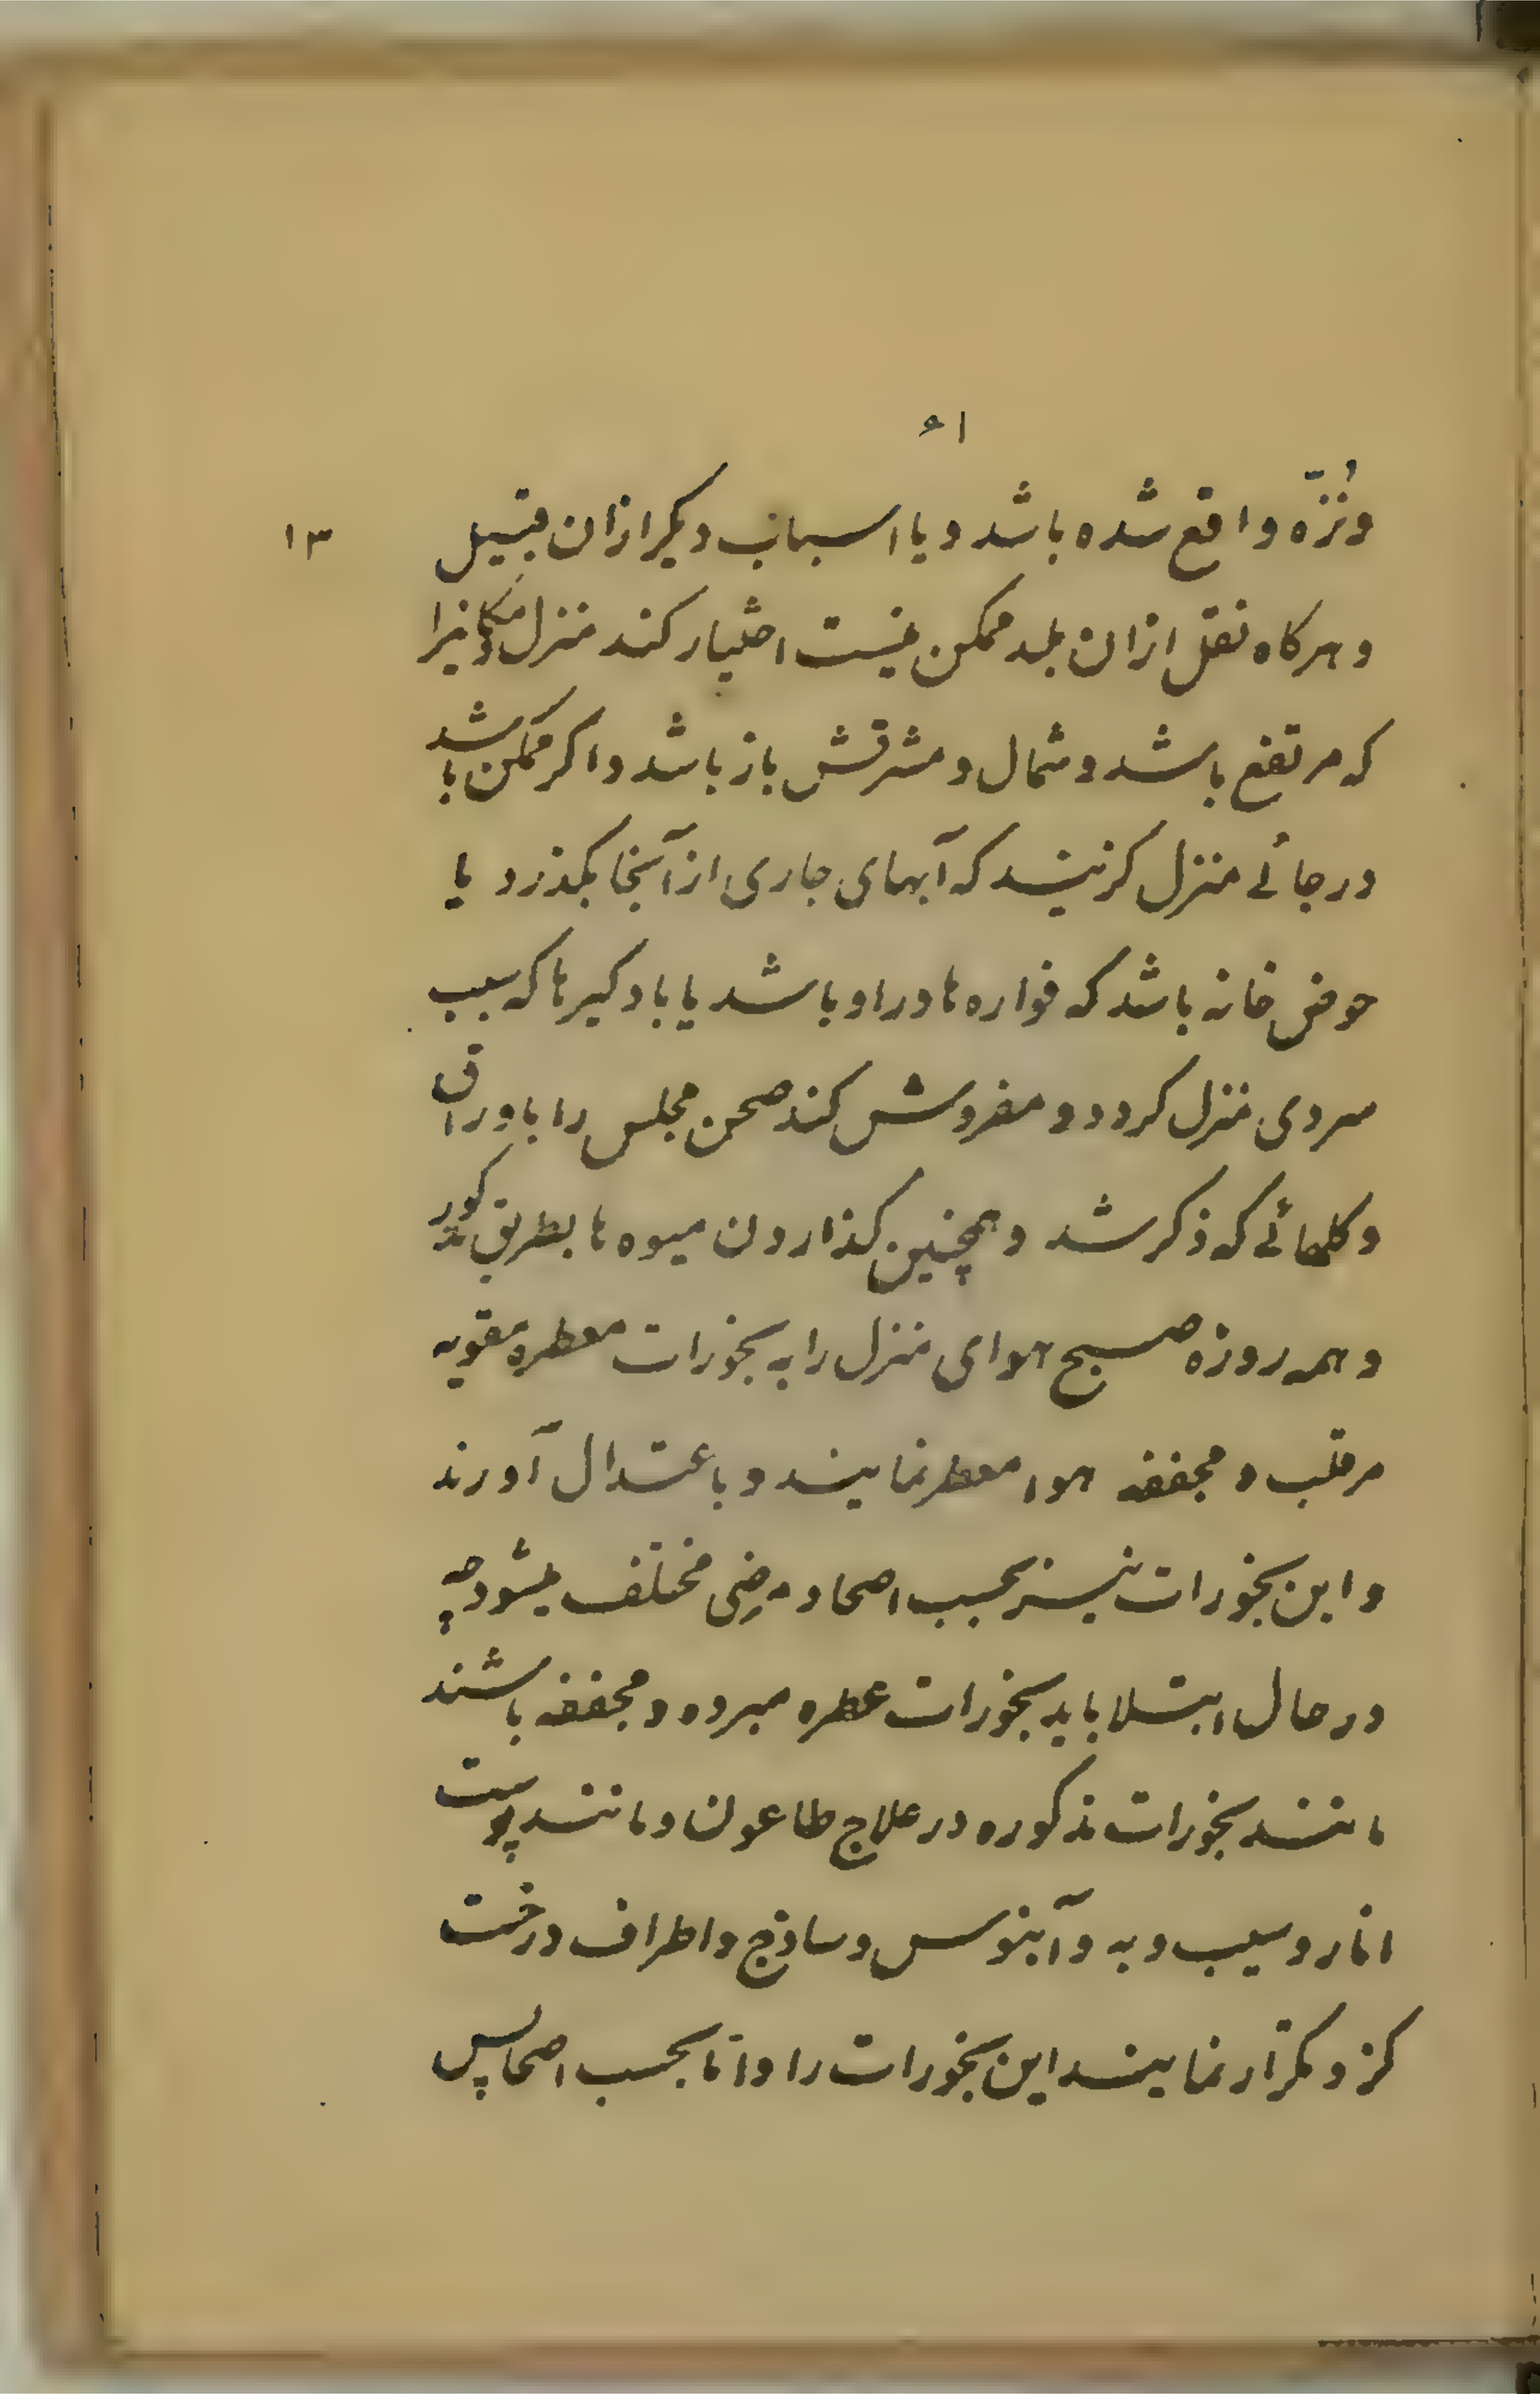 ۱۵
ونُزّه واقع شده باشد و یا اسباب دیکر ازان قبیل
۱۳
و هرکاه نقل ازان بلد ممکن نیست اختیار کند منزل و مکانیرا
که مرتفع باشد و شمال و مشرقش باز باشد و اکر ممکن باشد
در جائی منزل کزینند که آبهای جاری از آنجا بکذرد یا
حوض خانه باشد که فواره ها در او باشد یا بادکیرها که سبب
سردی منزل کردد و مفروش کند صحن مجلس را باوراق
و کلهائی که ذکر شد و همچنین کذاردن میوه ها بطریق مذکور
و همه روزه صبح هوای منزل را به بخورات معطره مقویه
مر قلب و مجففه هوا معطر نمایند و باعتدال آورند
و این بخورات نیز بحسب اصحا و مرضی مختلف میشود چه
در حال ابتلا باید بخورات عطره مبرده و مجففه باشند
مانند بخورات مذکوره در علاج طاعون و مانند پوست
انار و سیب و به و آبنوس و ساذج و اطراف درخت
کز و مکرّر نمایند این بخورات را و امّا بحسب اصحا پس